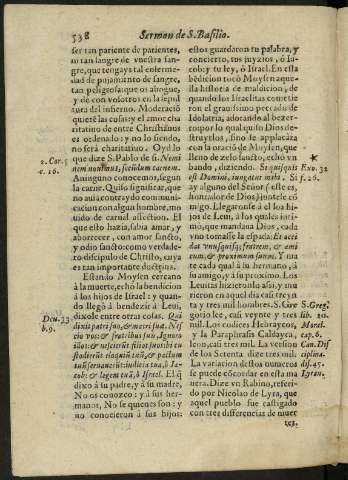 538
Sermon de S. Basilio.
ser tan pariente de parientes,
ni tan sangre de vuestra san-
gre, que tengays tal enferme-
dad de pujamiento de sangre,
tan peligrosa: que os ahogue,
y dè con vosotros en la sepul
tura del infierno. Moderaciõ
quieto las cosas: y el amor cha
ritatiuo de entre Christianos
es ordenado: y no lo siendo,
no serà charitatiuo. Oyd lo
que dize S. Pablo de si. Nemi
nem nouimus, secũdum carnem.
A ninguno conocemos, segun
la carne. Quiso significar, que
no aura contrato y comuni-
caciõ con algun hombre, mo
uido de carnal affection. El
que esto hazia, sabia amar, y
aborrecer, con amor sancto,
y odio sancto: como verdade-
ro discipulo de Christo, cuya
es tan importante doctrina.
Estando Moysen cercano
à la muerte, echò la bendiciõ
a los hijos de Israel: y quan-
do llegò a bendezir à Leui,
dixole entre otras cosas. Qui
dixit patri suo, & matri suæ. Nes
cio vos: & fratribus suis, Igno
ro vos: & nescierũt filios suos: hi cu
stodierũt eloquiũ tuũ, & pactum
tuũ seruauerũt: iudicia tua, ô Ia-
cob: & legem tuã, ô Israel. El q̃
dixo à su padre, y à su madre,
No os conozco: y à sus her-
manos, No se quienes son: y
no conocieron à sus hijos:
2. Cor. 5
v. 16.
Deu. 33
b. 9.
estos guardaron tu palabra, y
concierto, tus juyzios, ô Ia-
cob: y tu ley, ô Israel. En esta
bendicion tocò Moysen aque-
lla historia de maldicion, de
quando los Israelitas cometie
ron el grauissimo pecado de
Idolatria, adorando al bezer-
ro: por lo qual quiso Dios de-
struyrlos, sino se aplacàra
con la oraciõ de Moysen, que
lleno de zelo sancto, echò vn
bando, diziendo. Si quis est Exo. 32
est Domini, iungatur mihi. Si f. 26.
ay alguno del Señor (esto es,
honrador de Dios) juntele cõ
migo. Llegaronse à el los hi-
jos de Leui, à los quales inti-
mò, que mandaua Dios, cada
vno tomasse la espada: Et occi
dat vnusquisq; fratrem, & ami
cum, & proximum suum. Y ma
te cada qual à su hermano, à
su amigo, y à su proximo. Los
Leuitas hizieronlo assi, y mu
rieron en aquel dia casi treyn
ta y tres mil hombres. S. Gre
gorio lee, casi veynte y tres
mil. Los codices Hebraycos,
y la Paraphrasis Caldayca,
leen, casi tres mil. La version
de los Setenta dize tres mil.
La variacion destos numeros
se puede cõcordar en esta ma
nera. Dize vn Rabino, referi-
do por Nicolao de Lyra, que
aquel pueblo fue castigado
con tres differencias de muer
tes.
S. Greg.
lib. 20.
Moral.
cap. 6.
Can. Dis
ciplina.
dis. 45.
Lyran.